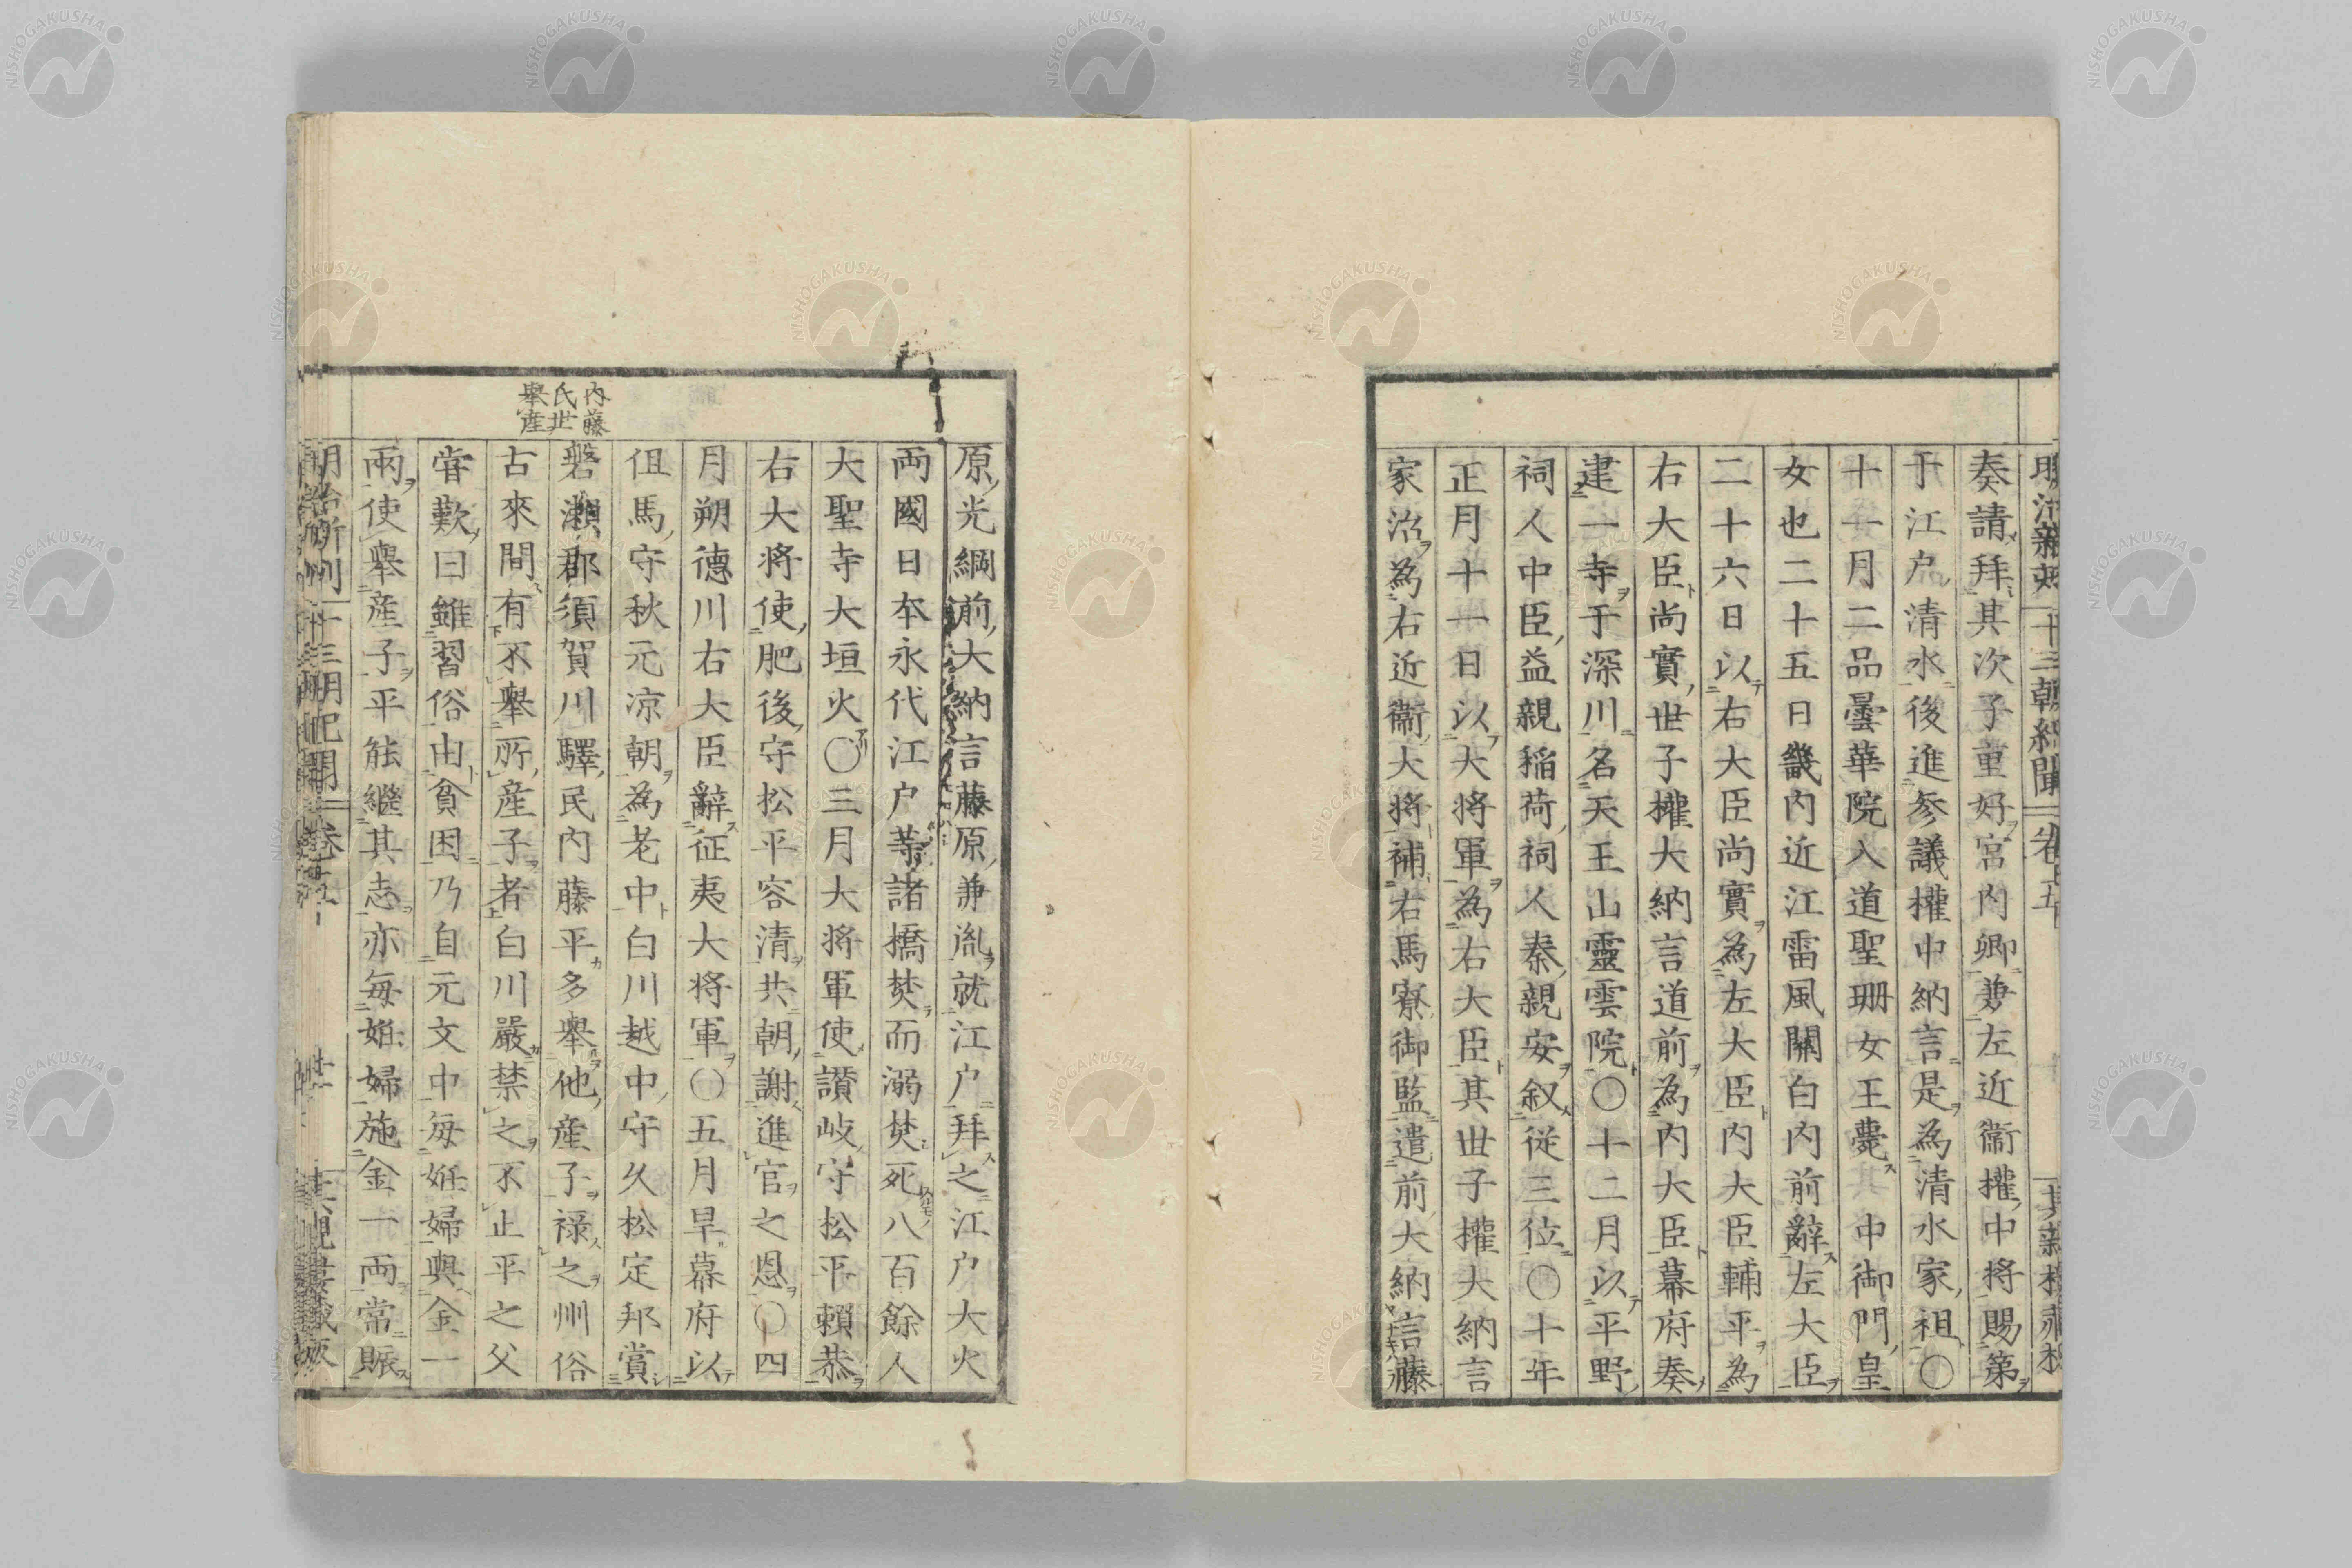 奏請拜其次子重好宮内卿兼左近衞權中將賜第
于江户清水後進參議權中納言是為清水家祖〇
十一月二品曇華院入道聖珊女王薨中御門皇
女也二十五日畿内近江雷風關白内前辭左大臣
二十六日以右大臣尚實為左大臣内大臣輔平為
右大臣尚實世子權大納言道前為内大臣幕府奏
建一寺于深川名天王山靈雲院〇十二月以平野
祠人中臣益親稲荷祠人秦親安叙従三位〇十年
正月十一日以大將軍為右大臣其世子權大納言
家治為右近衞大將補右馬寮御監遣前大納言藤
原光綱前大納言藤原兼胤就江户拜之江户大火
兩國日本永代江户等諸橋焚而溺焚死八百餘人
大聖寺大垣火〇三月大將軍使讃岐守松平頼恭
右大將使肥後守松平容清共朝謝進官之恩〇四
月朔德川右大臣辭征夷大將軍〇五月旱幕府以
但馬守秋元凉朝為老中白川越中守久松定邦賞
磐瀬郡須賀川驛民内藤平多舉他産子禄之州俗
古來間有不舉所産子者白川嚴禁之不止平之父
甞歎曰雖習俗由貧困乃自元文中每姙婦與金一
兩使舉産子平能繼其志亦每姙婦施金一兩常賑
内藤
氏世
舉産